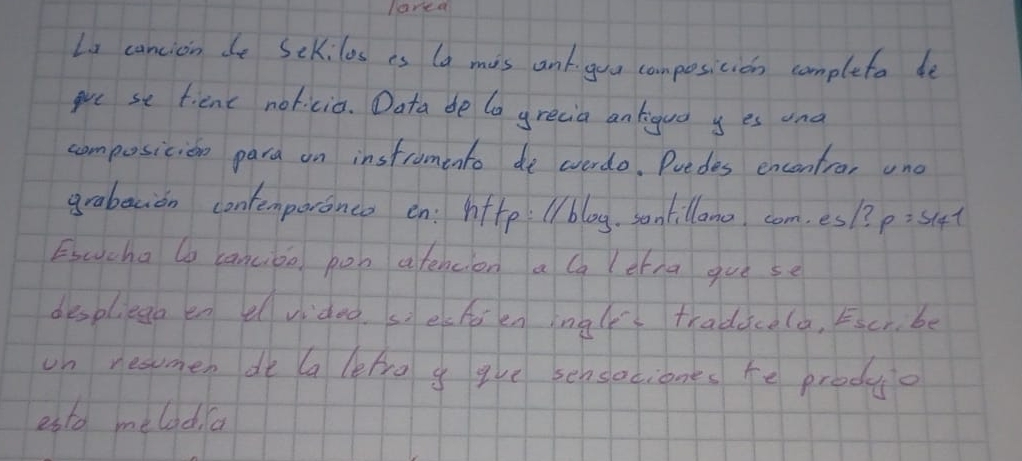 Tarea
La canción de Sekilos es la más antigua composición completa de
que se tiene noticia. Data de la grecia antigua y es una
composición para un instrumento de cuerda. Puedes encontrar una
grabación contemporánea en: http://blog.santillana.com.es/?p=5141
Escucha la canción, pon atencion a la letra que se
despliega en el video. si está en inglés tradúcela, Escribe
un resumen de la letra y que sensaciones te produjo
esta melodía